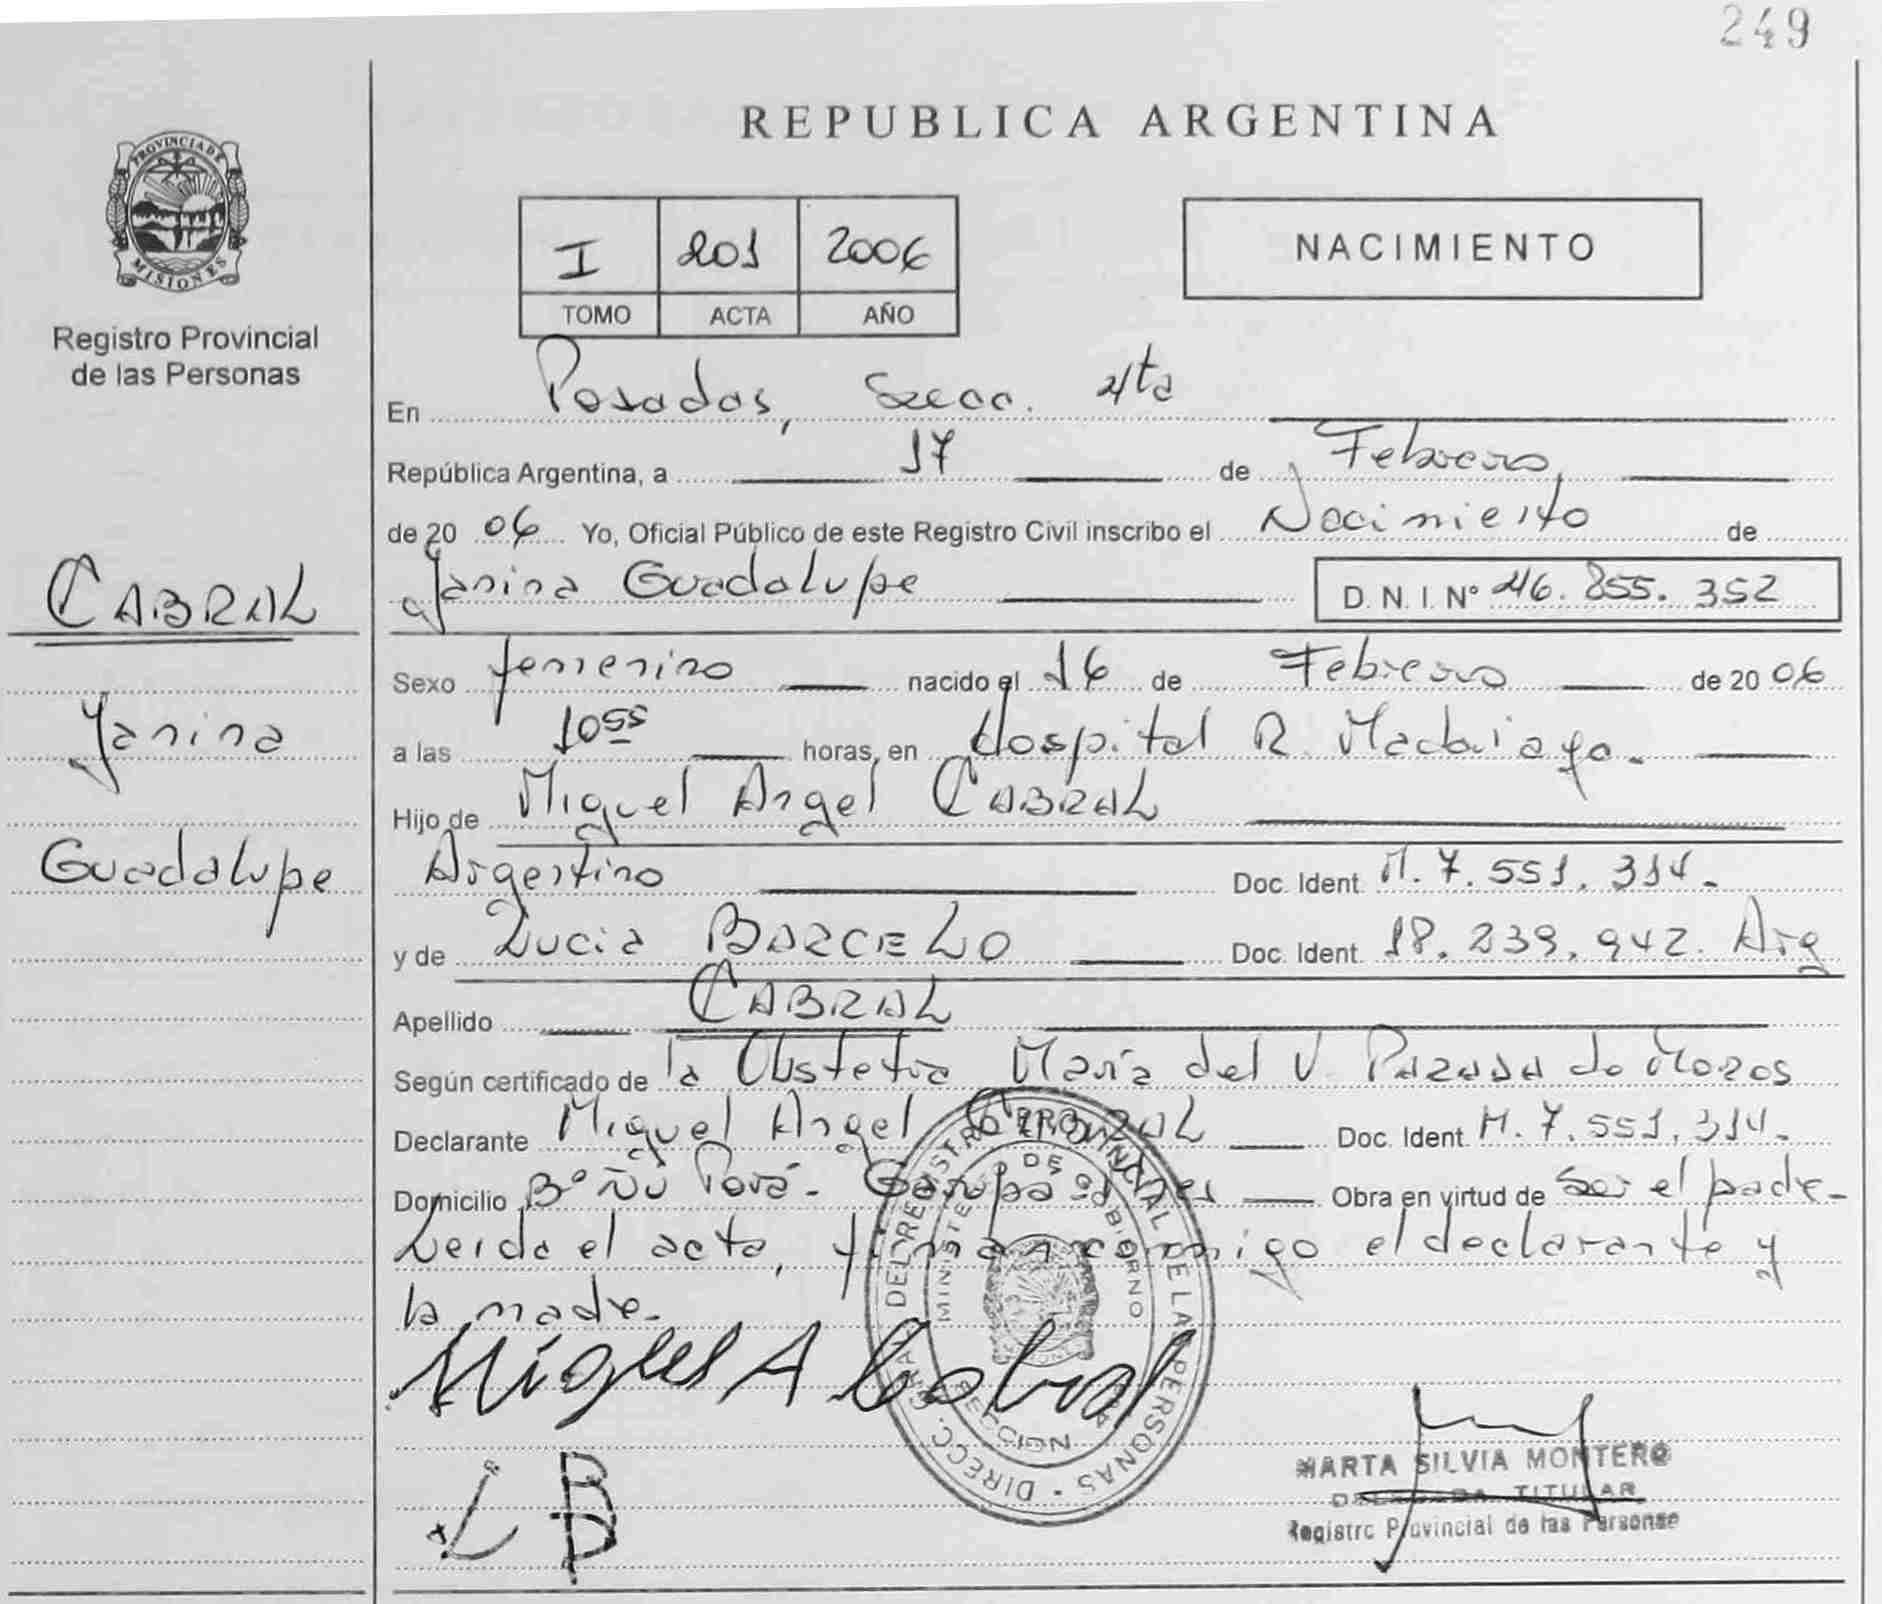 249
REPUBLICA ARGENTINA
PROVINCIA DE
MISIONES
Registro Provincial
de las Personas
I 201 2006
TOMO ACTA AÑO
NACIMIENTO
En Posadas, Secc. 4ta
República Argentina, a 17 de Febrero
de 2006 Yo, Oficial Público de este Registro Civil inscribo el Nacimiento de
CABRAL
Yanina Guadalupe D.N.I. Nº 46.855.352
Sexo femenino nacido el 16 de Febrero de 2006
Yanina
a las 10 55 horas, en Hospital R. Madariaga.
Hijo de Miguel Angel CABRAL
Guadalupe
Argentino Doc. Ident. M. 7.551.314.
y de Lucia BARCELO Doc. Ident. 18.239.942. Arg
Apellido CABRAL
Según certificado de la Obstetra María del V. PARADA de Moros
Declarante Miguel Angel CABRAL Doc. Ident. M. 7.551.314.
Domicilio Bº Ñu Porá. Garupá Obra en virtud de ser el padre.
Leida el acta, firman conmigo el declarante y
la madre.
Miguel A Cabral
L B
DIRECC. GRAL. DEL REGISTRO PROVINCIAL DE LAS PERSONAS
MINISTERIO DE GOBIERNO
MARTA SILVIA MONTERO
DELEGADA TITULAR
Registro Provincial de las Personas